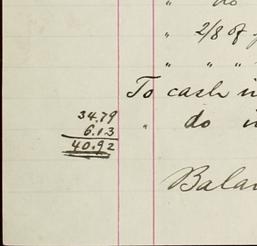 " no
" 2/8 of
" " "
To cash
34.79
6.13
" do
40.92
Balan